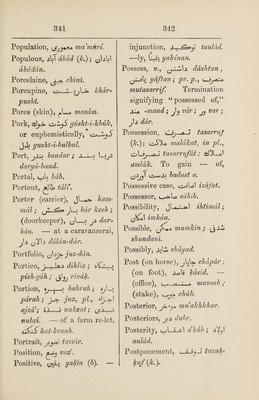 341
Population, معموری ma'muri.
Populous, آباد ábád (k.); آبادان
ábádán.
Porcelaine, چینی chini.
Porcupine, خارپشت khár-
pusht.
Pores (skin), مسام masám.
Pork, گوشت خوک gusht-i-khúk,
or euphemistically, گوشت
بلبل gusht-i-bulbul.
Port, بندر bandar; دریا بند
daryá-band.
Portal, باب báb.
Portent, طالع táli'.
Porter (carrier), حمال ham-
mál; بارکش bár kesh;
(doorkeeper), دربان dar-
bán. — at a caravanserai,
دالان دار dálán-dár.
Portfolio, جزودان juz-dán.
Portico, دهلیز dihliz; پیشگاه
písh-gáh; رواق riváq.
Portion, بهره bahrah; پاره
párah; جزو juz, pl., اجزا
ajzá'; نبذت nubzat; نبذی
nubzi. — of a farm re-let,
کتکنه kut-kenah.
Portrait, تصویر tasvír.
Position, وضع vaz'.
Positive, یقین yaḳín (b). —
342
injunction, تأکید taukíd.
—ly, یقیناً yaḳínan.
Possess, v., داشتن dáshtan,
یافتن yáftan; pr. p., متصرف
mutasarrif. Termination
signifying "possessed of,"
مند -mand; وار vár; ور var;
دار dár.
Possession, تصرف tasarruf
(k.); ملاکه malákat, in pl.,
تصرفات tasarrufát; املاک
amlák. To gain — of,
بدست آوردن badast a.
Possessive case, اضافت izáfat.
Possessor, صاحب náhib.
Possibility, احتمال ihtimál;
امکان imkán.
Possible, ممکن mumkin; شدنی
shundani.
Possibly, شاید sháyad.
Post (on horse), چاپار chápár;
(on foot), قاصد ḳásid. —
(office), منصب mansab,
(stake), چوب chúb.
Posterior, مؤخر mu'akhkhar.
Posteriors, دبر dubr.
Posterity, اعقاب a'ḳáb; اولاد
aulád.
Postponement, توقف tavaḳ-
ḳuf (k.).